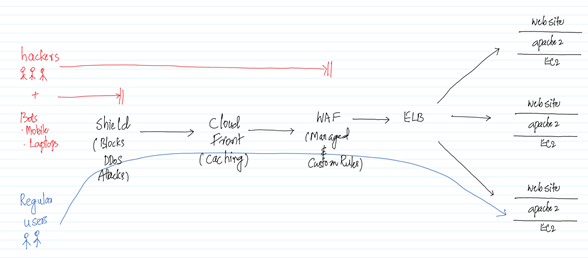 hackers
+
Bots
. Mobile
. Laptops
Regular
users
Shield
(Blocks
DDoS
Attacks)
Cloud
Front
(Caching)
WAF
(Managed
&
Custom Rules)
ELB
website
apache2
EC2
website
apache2
EC2
website
apache2
EC2